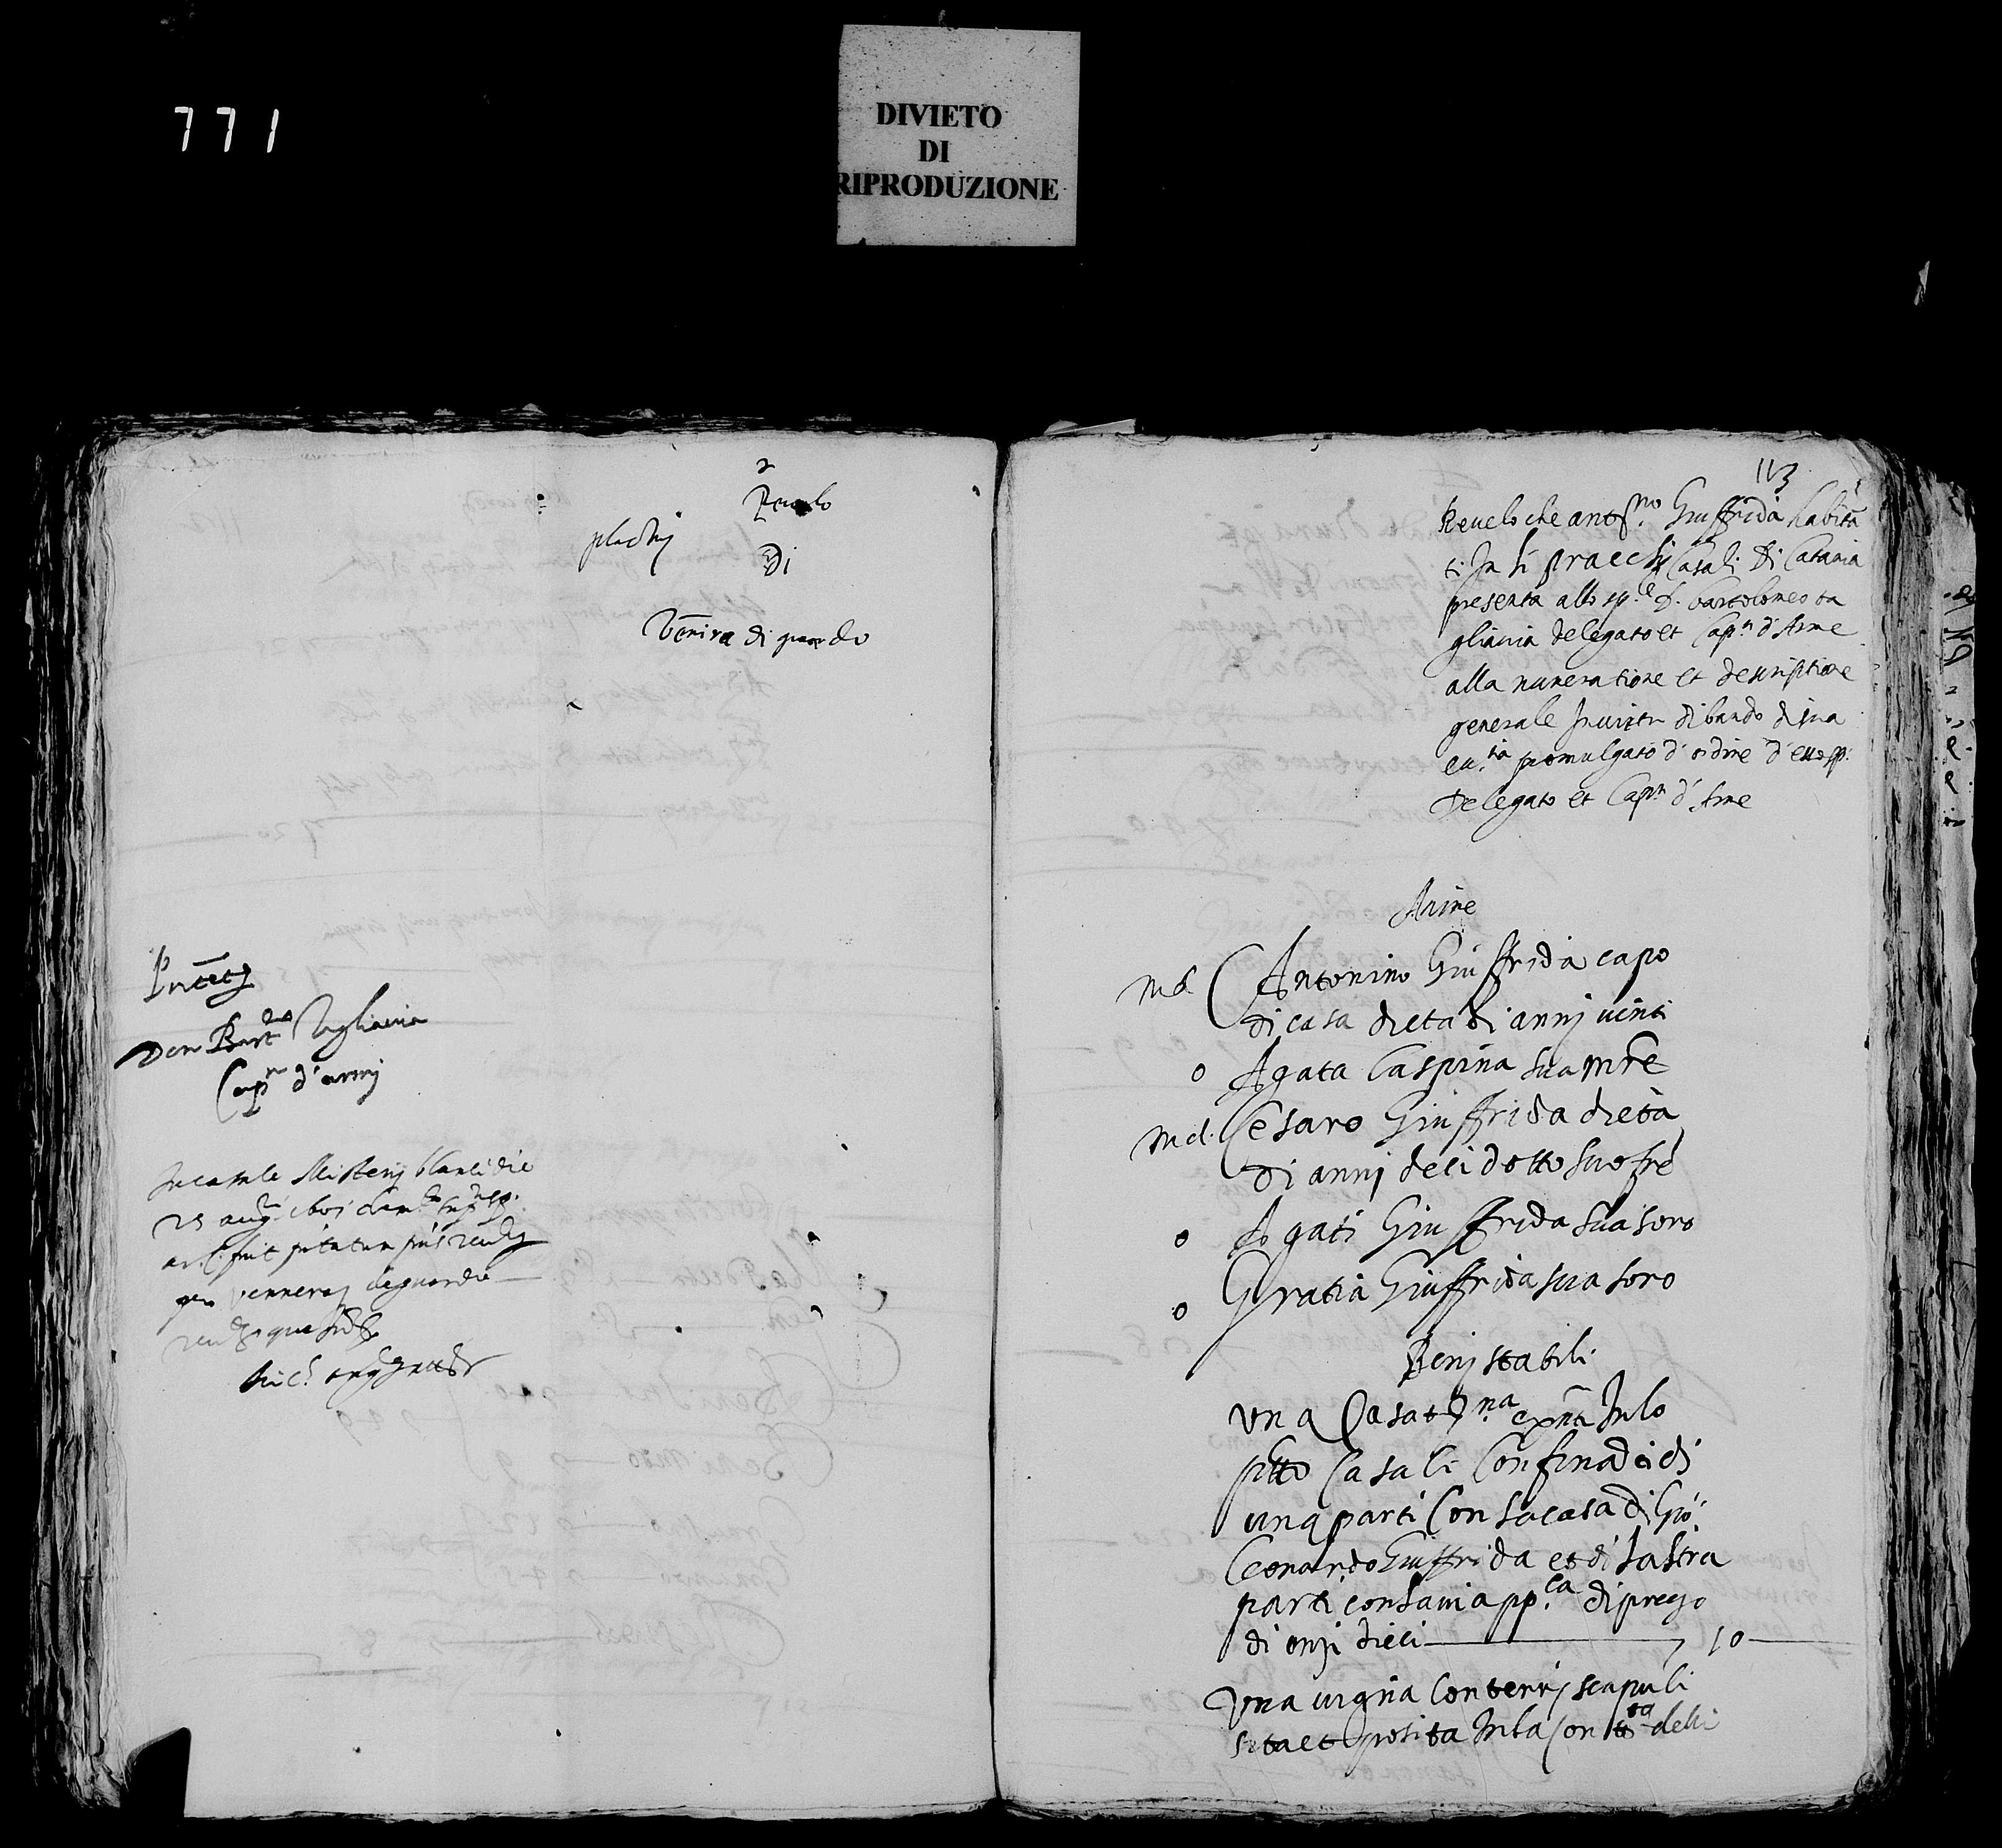 771
DIVIETO
DI
RIPRODUZIONE
2
Revelo
plachi
Di
Venira di guardo
Don Bart.eo Tagliavia
Cap.n d'armi
In casale Misterj blanci die
25 aug.
fuit
venneraj deguardio
113
Revelo che ant.no Giuffrida habita
ti In li praechi Casali Di Catania
presenta allo sp.le d. bartolomeo ta
gliavia delegato et Cap.n d'Arme
alla numeratione et descriptione
generale In virtu di bando di sua
ecc.tia promulgato d'ordine d'esso sp.
Delegato et Cap.n d'Arme
Anime
Md. Antonino Giuffrida capo
di casa d'eta di annj uinti
o Agata Caspina sua m̃re
Md. Cesaro Giuffrida d'eta
di annj deci dotto suo fre
o Agati Giuffrida sua soro
o Gratia Giuffrida sua soro
Benj stabili
Una Casa t.na exñti In lo
p̃tto Casali Confinati di
una parti Con la casa di Gio:
Leonardo Giuffrida et di laltra
parti con la via pp.ca di prezo
di onzi dieci 10
Una vigna Con terrj scapuli
sita et posita In la Con t.ta delli